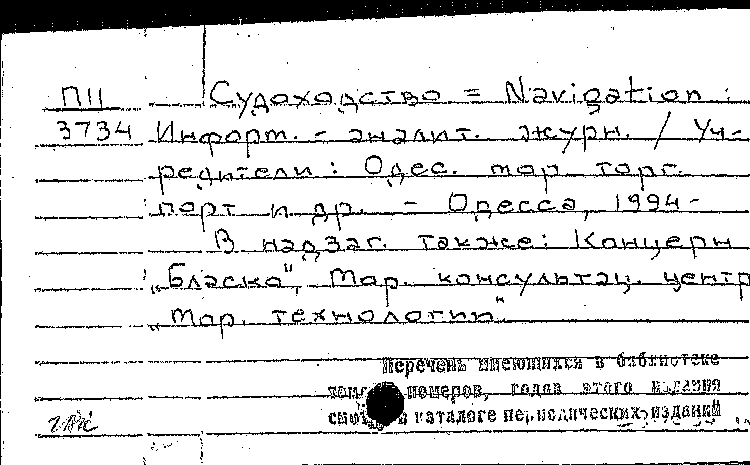 П11
3734
Судоходство = Navigation :
Информ. - аналит. журн. / Уч-
редители: Одес. мор. торг.
порт и др. - Одесса, 1994-
В надзаг. также: Концерн
„Бласко", Мор. консультац. центр
„Мор. технологии".
Перечень имеющихся в библиотеке
номеров, годов этого издания
в каталоге периодических изданий